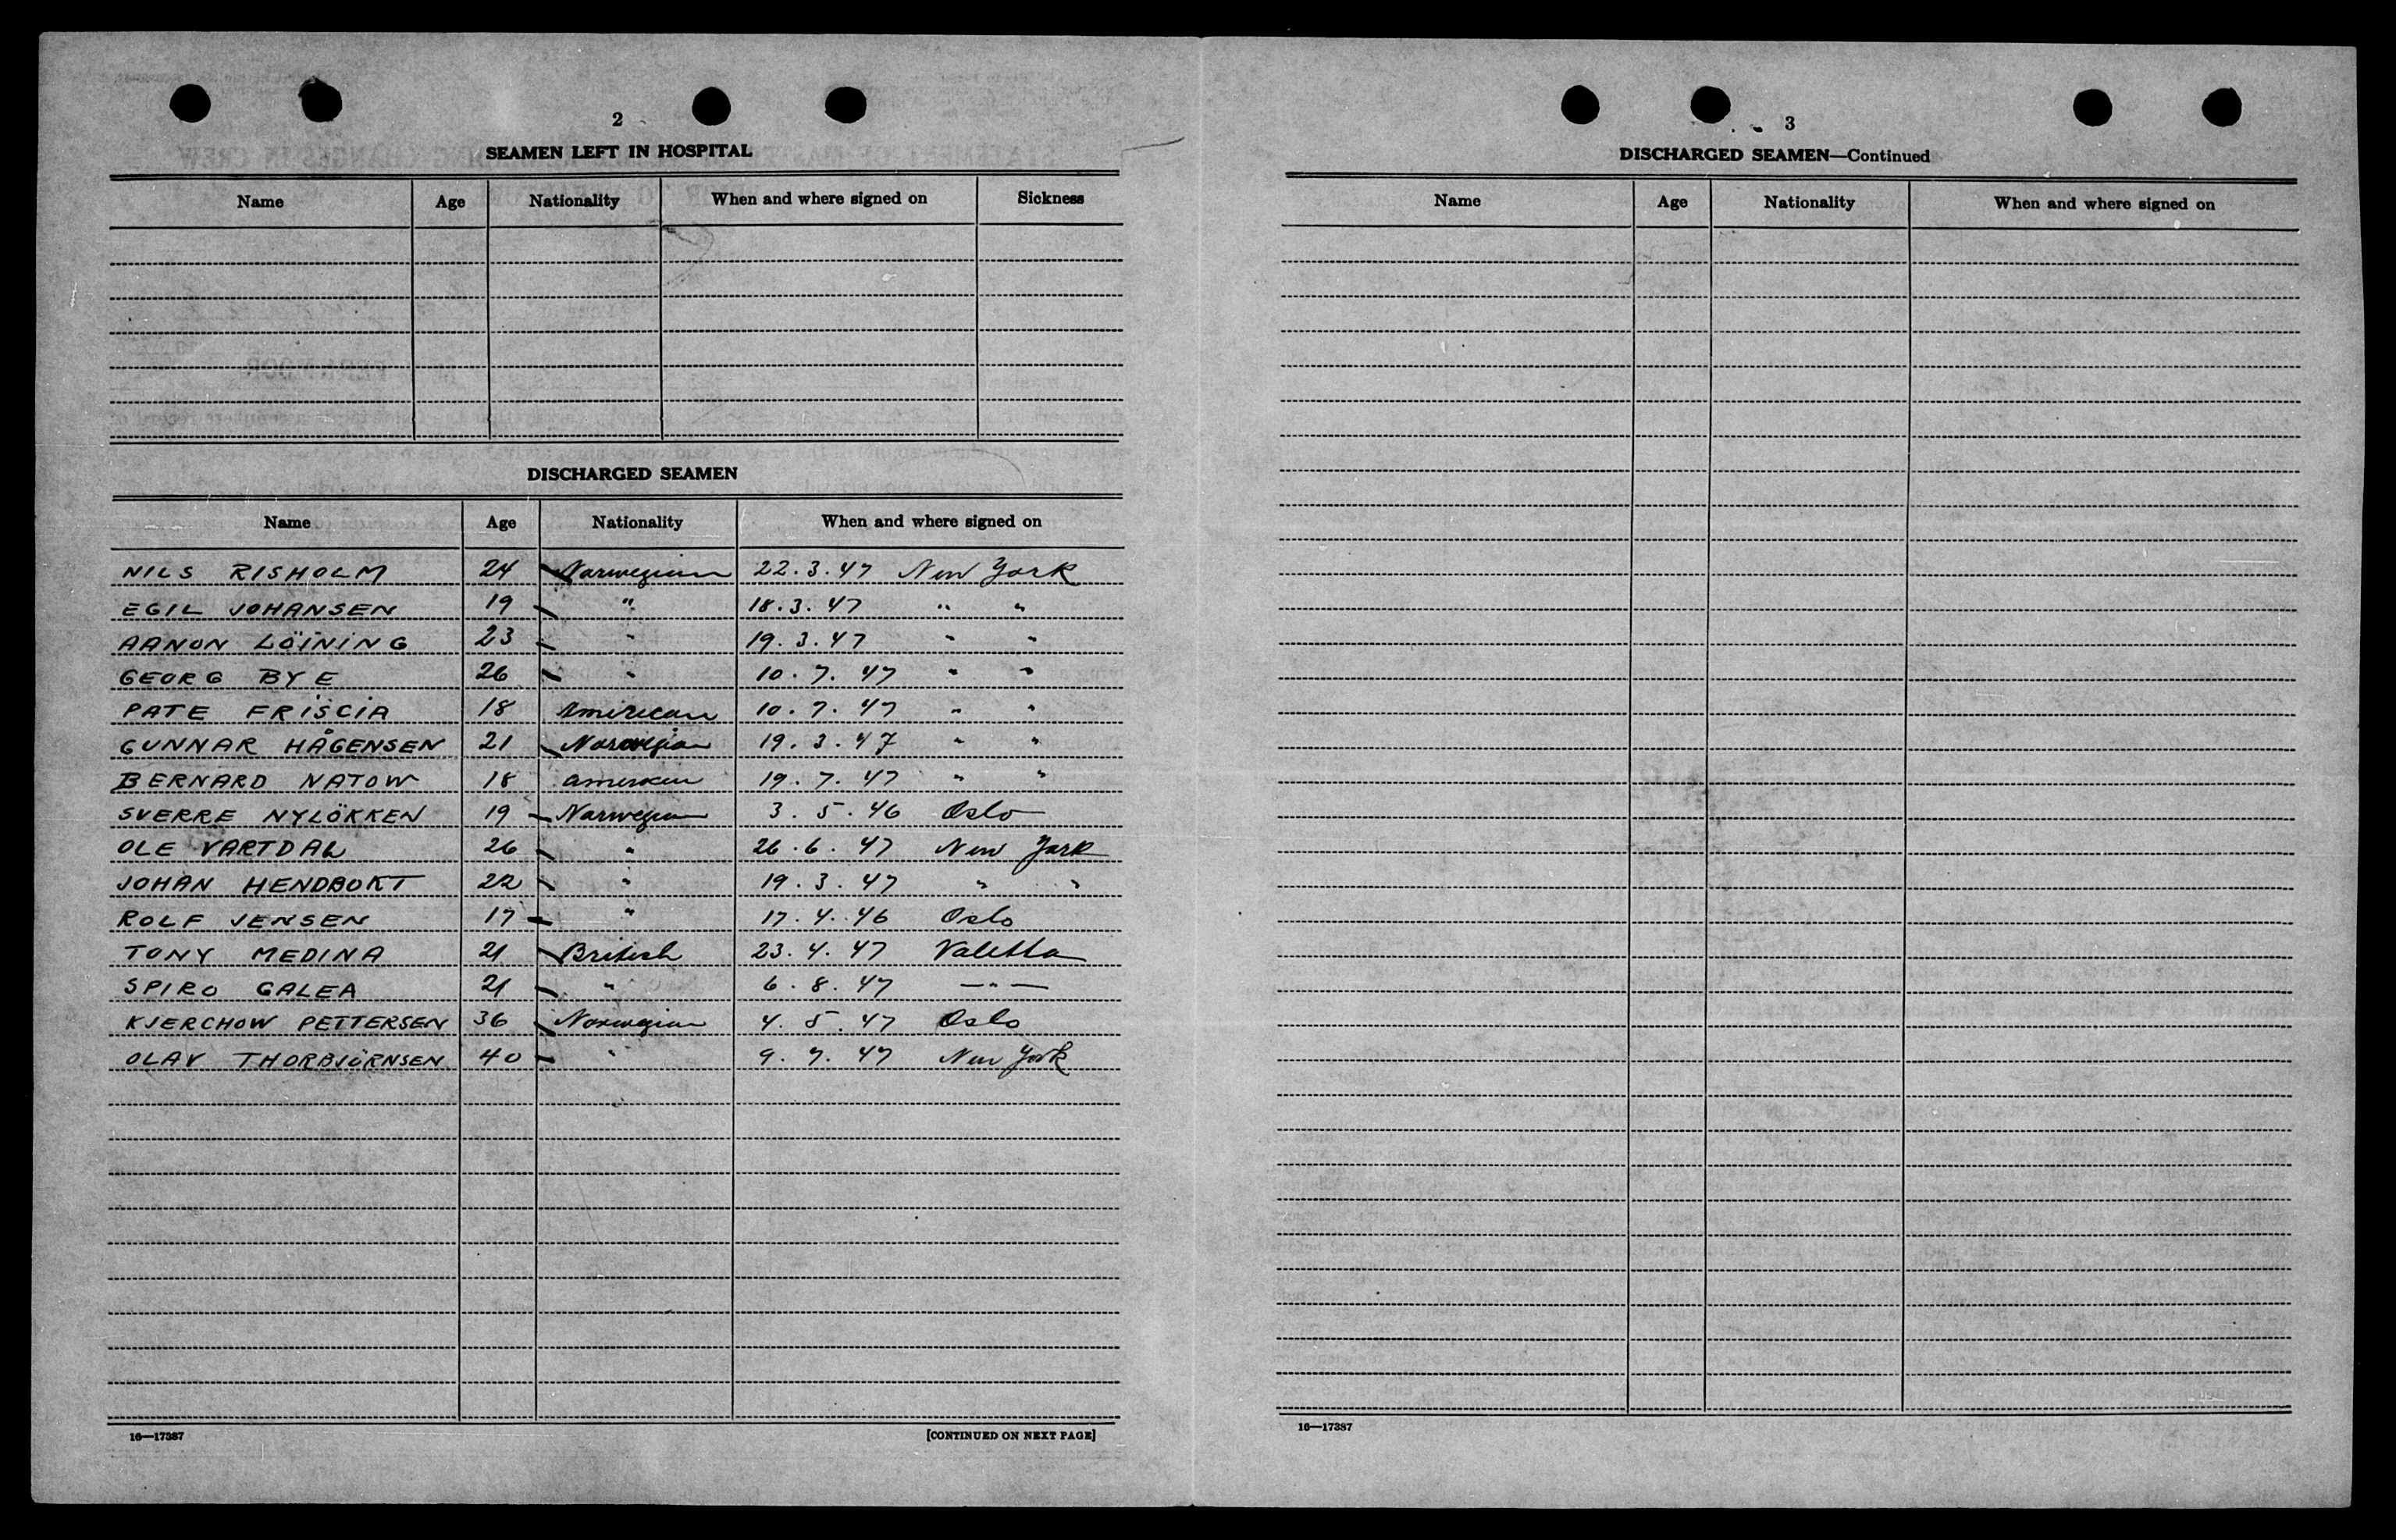 2
SEAMEN LEFT IN HOSPITAL
Name Age Nationality When and where signed on Sickness
DISCHARGED SEAMEN
Name Age Nationality When and where signed on
NILS RISHOLM 24 Norwegian 22.3.47 New York
EGIL JOHANSEN 19 " 18.3.47 " "
AANON LÖINING 23 " 19.3.47 " "
GEORG BYE 26 " 10.7.47 " "
PATE FRISCIA 18 American 10.7.47 " "
GUNNAR HÅGENSEN 21 Norwegian 19.3.47 " "
BERNARD NATOW 18 american 19.7.47 " "
SVERRE NYLÖKKEN 19 Norwegian 3.5.46 Oslo
OLE VARTDAL 26 " 26.6.47 New York
JOHAN HENDBUKT 22 " 19.3.47 " "
ROLF JENSEN 17 " 17.4.46 Oslo
TONY MEDINA 21 British 23.4.47 Valetta
SPIRO GALEA 21 " 6.8.47 —"—
KJERCHOW PETTERSEN 36 Norwegian 4.5.47 Oslo
OLAV THORBJÖRNSEN 40 " 9.7.47 New York
16—17387 [CONTINUED ON NEXT PAGE]
3
DISCHARGED SEAMEN—Continued
Name Age Nationality When and where signed on
16—17387